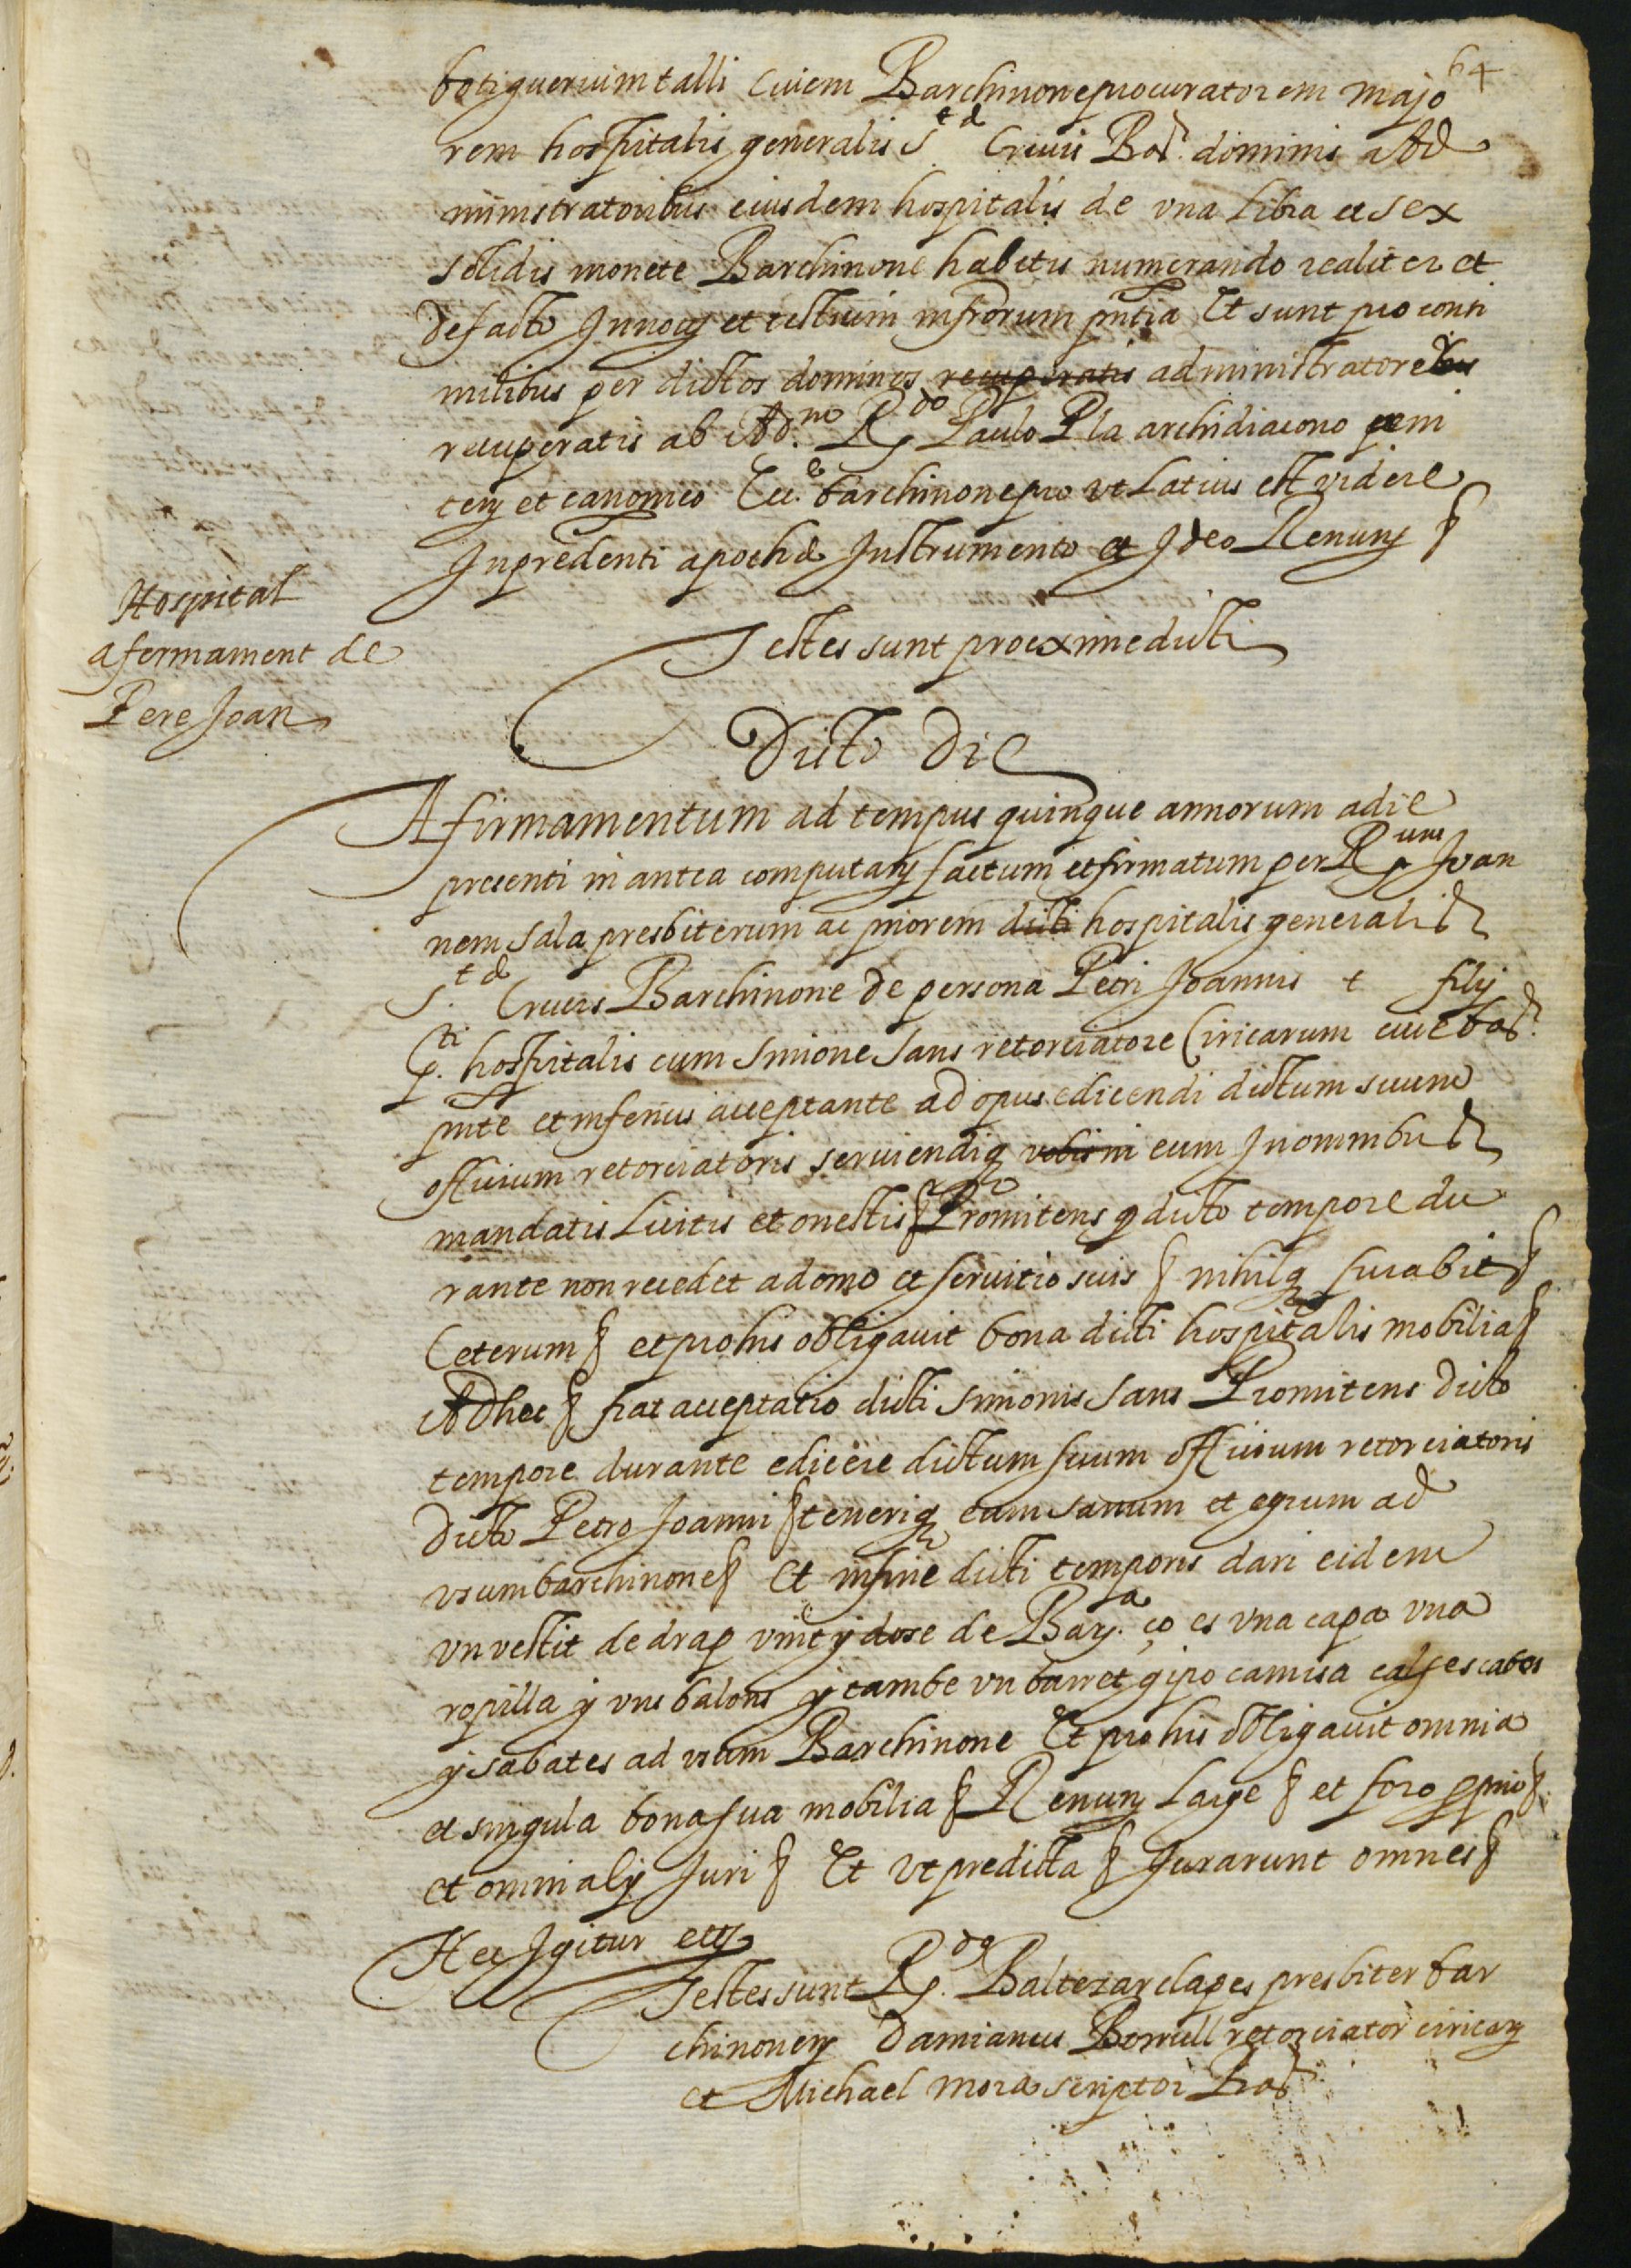 64
botiguerium talli Civem Barchinone procuratorem majo
rem hospitalis generalis S.te Crucis Bar. dominis Ad
ministratoribus eiusdem hospitalis de una Libra et sex
solidis monete Barchinone habitis numerando realiter et
de facto In notij et testium infrorum pntia Et sunt pro consi
milibus per dictos dominos recuperatis administratorebus
recuperatis ab Ad.m R.do Paulo Pla archidiacono peni
tens et canonico Ecc.e barchinone pro ut Latius est videre
In predenti apocha Instrumento et Ideo Renuns §
Testes sunt proexime dicti
Hospital
afermament de
Pere Joan
Dicto Die
Afirmamentum ad tempus quinque annorum a die
presenti in antea computans factum et firmatum per R.um Joan
nem Sala presbiterum ac priorem dicti hospitalis generalis
S.te Crucis Barchinone de persona Petri Joannis t filij
p.ti hospitalis cum Simione Sans retorciatore Ciricarum cive bar.
pnte et inferius acceptante ad opus edicendi dictum suum
officium retorciatoris serviendiq vobis ni eum In omnibus
mandatis Licitis et onestis § Promitens q dicto tempore du
rante non recedet a domo et servitio suis § nihilq furabit §
Ceterum § et pro his obligavit bona dicti hospitalis mobilia §
Ad hec § fiat acceptatio dicti Simonis Sans Promitens dicto
tempore durante edicere dictum suum officium retorciatoris
dicto Petro Joanni § teneriq eum sanum et egrum ad
usum barchinone § Et in fine dicti temporis dari eidem
un vestit de drap vint y dose de Bar.a ço es una capa una
ropilla y uns balons y tambe un barret gipo camisa calses cabos
y sabates ad usum Barchinone Et pro his obligavit omnia
et singula bona sua mobilia § Renuns Large § et foro pprio §
et omni alij Juri § Et ut predicta § Jurarunt omnes §
Hec Igitur etc
Testes sunt R.dq Baltezar clapes presbiter bar
chinonens Damianus Borrull retorciator ciricarz
et Michael mora scriptor Bar.